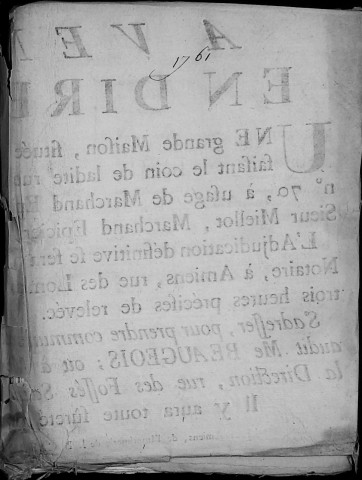 A VEN
1761
EN DIRE
UNE grande Maison, située
faisant le coin de ladite rue
n° 70, à usage de Marchand Ep
Sieur Miellot, Marchand Epicier
L'Adjudication définitive se fera
Notaire, à Amiens, rue des Lom
trois heures précises de relevée.
S'adresser, pour prendre commun
audit Me BEAUGEOIS; ou à
la Direction, rue des Fossés S
Il y aura toute sûreté